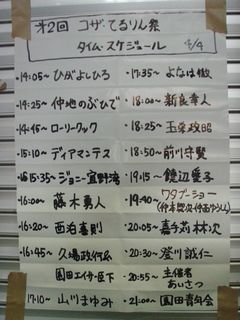 オ2回 コザ・てるりん祭
タイム・スケジュール 5/4
・14:05〜 ひがよしひろ
・14:25〜 仲地のぶひで
・14:45〜 ローリークック
・15:10〜 ディアマンテス
・15:35〜 ジョニー宜野湾
・16:00〜 藤木勇人
・16:20〜 西泊喜則
・16:45〜 久場政行
園田エイサー臣下
17:10〜 山川まゆみ
・17:35〜 よなは徹
・18:00〜 新良幸人
・18:25〜 玉栄政昭
・18:50〜 前川守賢
・19:15〜 饒辺愛子
・19:40〜 ワタブーショー
・20:05〜 嘉手苅林次
・20:30〜 登川誠仁
・20:55〜 主催者
あいさつ
・21:00〜 園田青年会